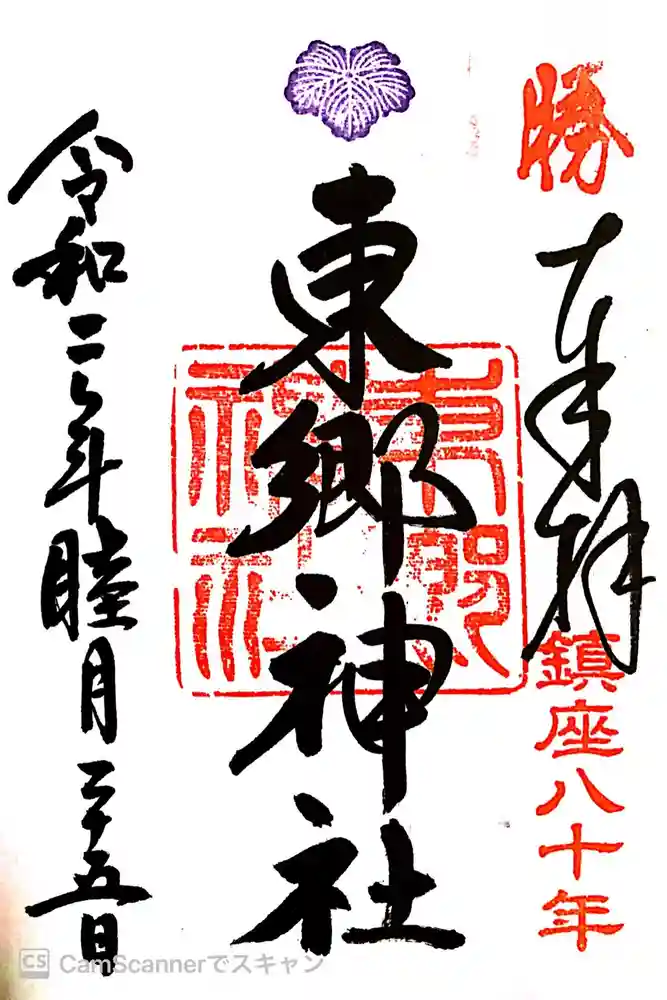 勝
奉拝
鎮座八十年
東郷神社
東郷神社
令和二年睦月二十五日
CS CamScannerでスキャン